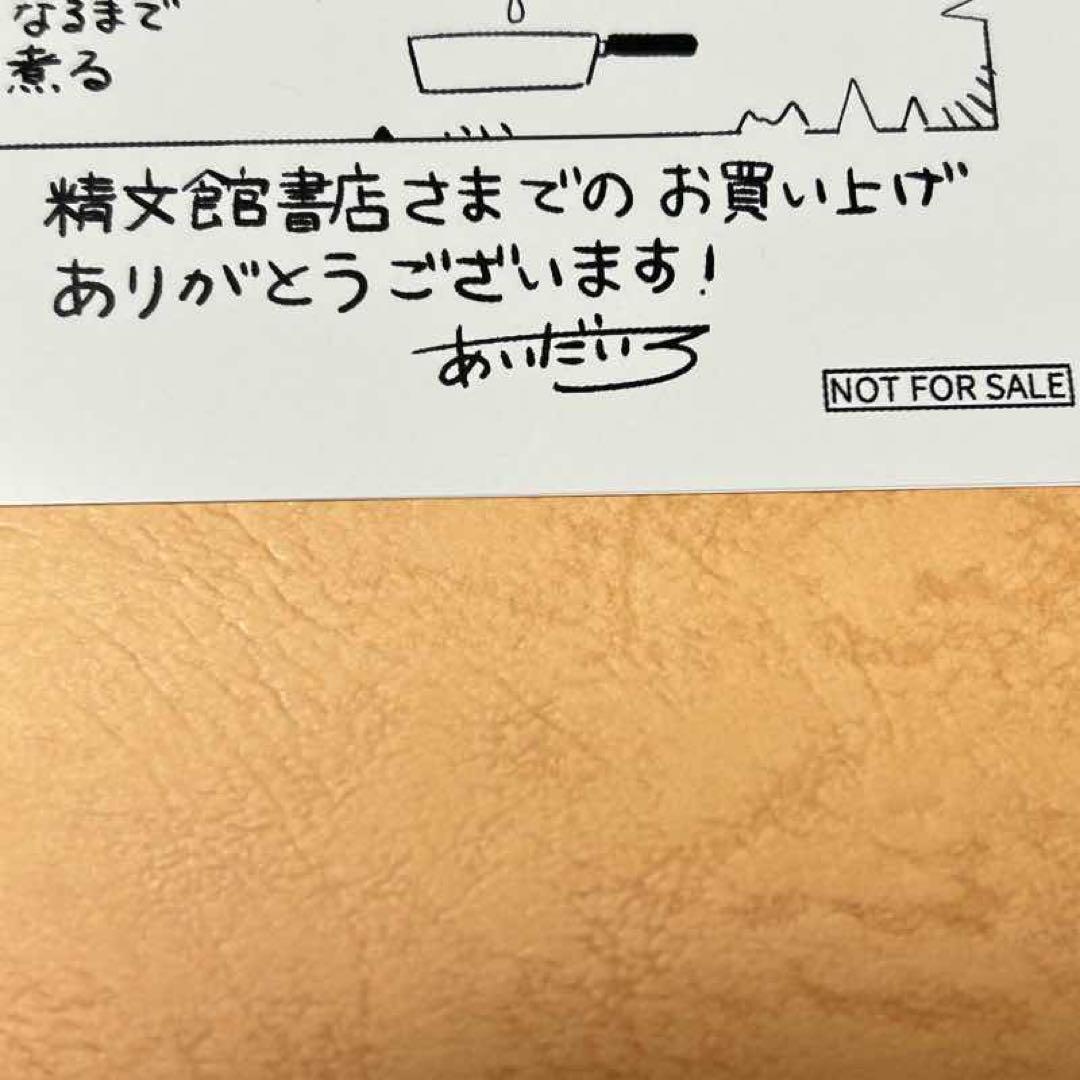 なるまで
煮る
精文館書店さまでのお買い上げ
ありがとうございます!
あいだいろ
NOT FOR SALE